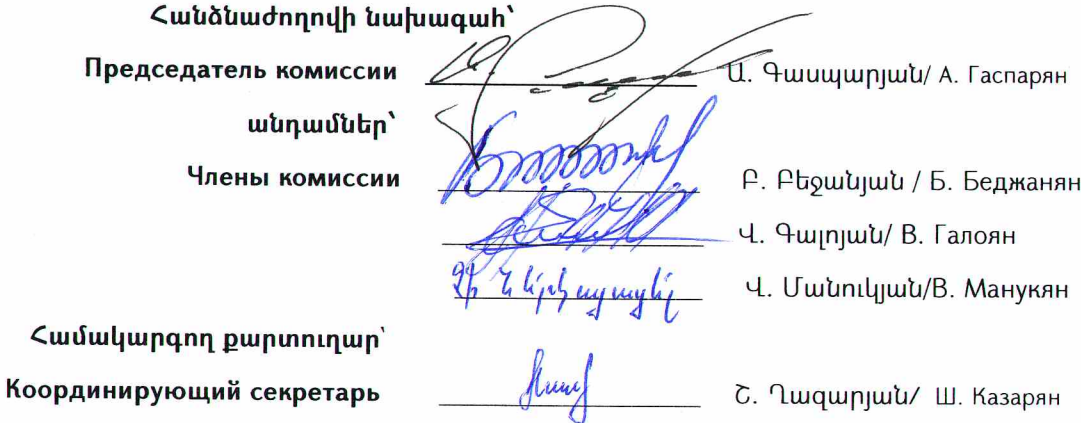 Հանձնաժողովի նախագահ՝
Председатель комиссии Ա. Գասպարյան/ А. Гаспарян
անդամներ՝
Члены комиссии Բ. Բեջանյան / Б. Беджанян
Վ. Գալոյան/ В. Галоян
Չի ներկայացել Վ. Մանուկյան/В. Манукян
Համակարգող քարտուղար՝
Координирующий секретарь Շ. Ղազարյան/ Ш. Казарян